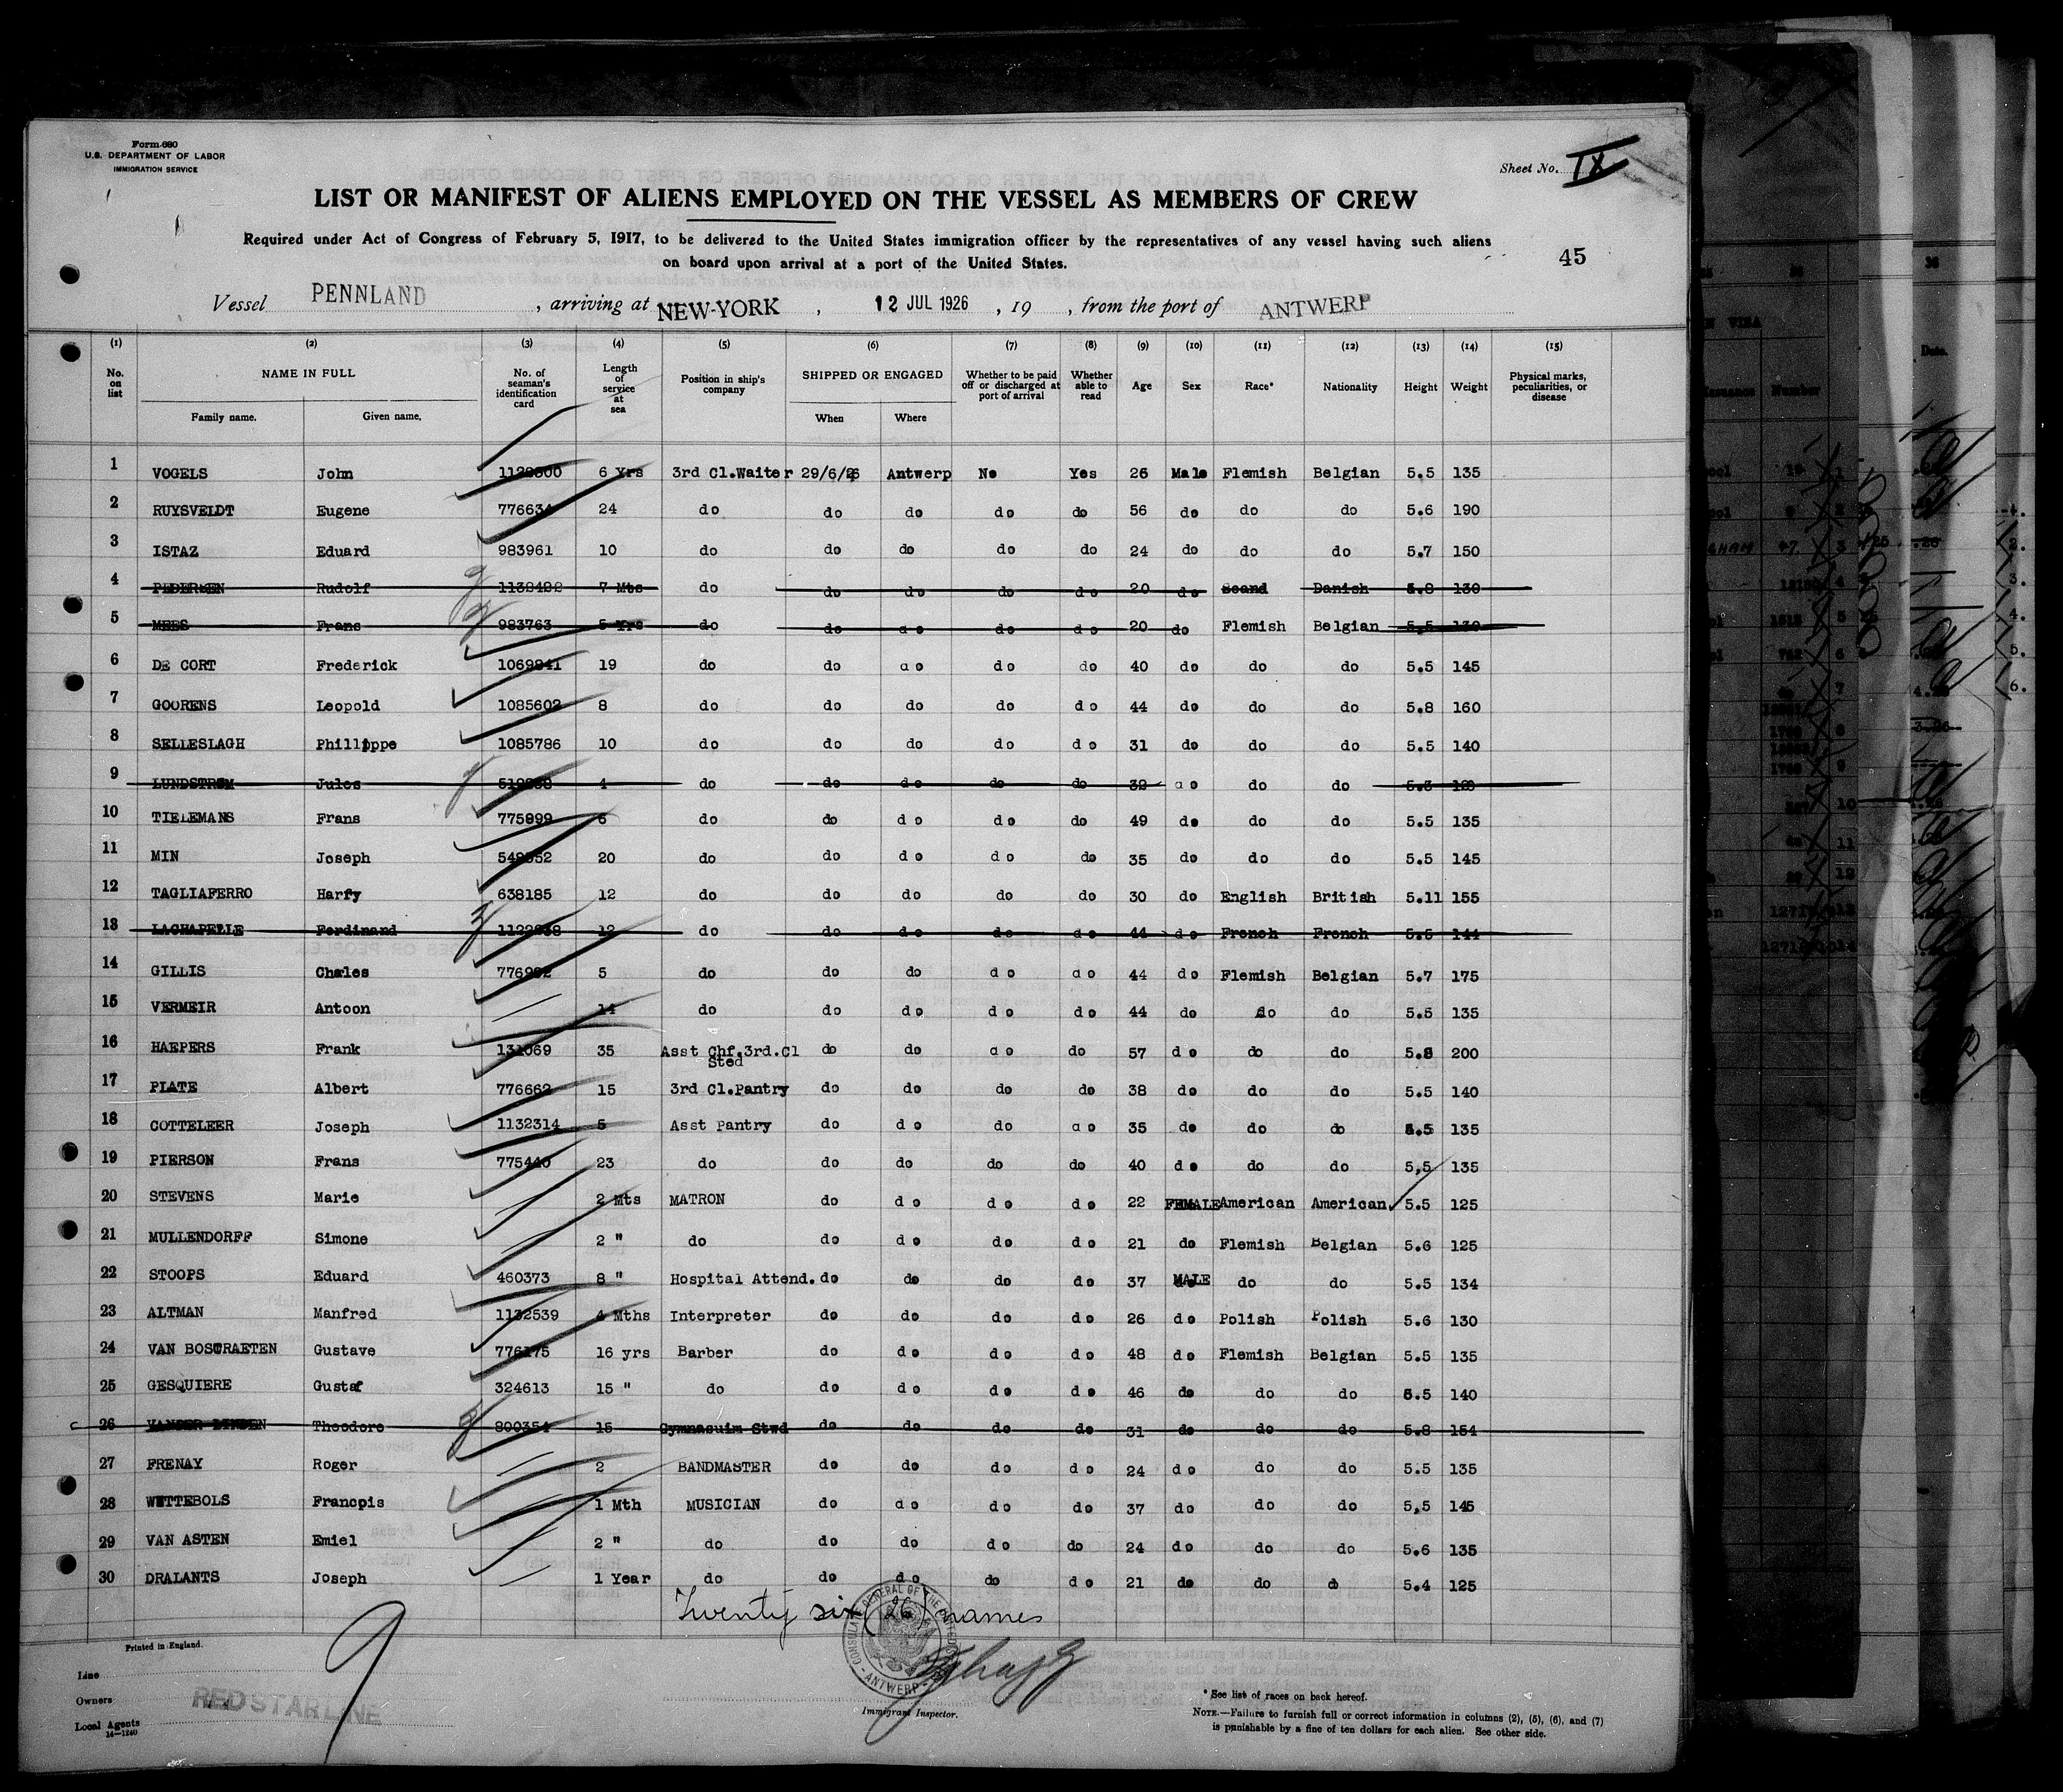 Form 680
U.S. DEPARTMENT OF LABOR
IMMIGRATION SERVICE
Sheet No. IX
LIST OR MANIFEST OF ALIENS EMPLOYED ON THE VESSEL AS MEMBERS OF CREW
Required under Act of Congress of February 5, 1917, to be delivered to the United States immigration officer by the representatives of any vessel having such aliens
on board upon arrival at a port of the United States.
45
Vessel PENNLAND, arriving at NEW-YORK, 12 JUL 1926, 19 , from the port of ANTWERP
(1) (2) (3) (4) (5) (6) (7) (8) (9) (10) (11) (12) (13) (14) (15)
No. on list NAME IN FULL Family name. Given name. No. of seaman's identification card Length of service at sea Position in ship's company SHIPPED OR ENGAGED When Where Whether to be paid off or discharged at port of arrival Whether able to read Age Sex Race* Nationality Height Weight Physical marks, peculiarities, or disease
1 VOGELS John 1128800 6 Yrs 3rd Cl.Waiter 29/6/26 Antwerp No Yes 26 Male Flemish Belgian 5.5 135
2 RUYSVELDT Eugene 776634 24 do do do do do 56 do do do 5.6 190
3 ISTAZ Eduard 983961 10 do do do do do 24 do do do 5.7 150
4 PEDERSEN Rudolf 1138482 7 Mts do do do do do 20 do Scand Danish 5.8 130
5 MEES Frans 983763 5 Yrs do do do do do 20 do Flemish Belgian 5,5 130
6 DE CORT Frederick 1069841 19 do do do do do 40 do do do 5.5 145
7 GOORENS Leopold 1085602 8 do do do do do 44 do do do 5.8 160
8 SELLESLAGH Philippe 1085786 10 do do do do do 31 do do do 5.5 140
9 LUNDSTROM Jules 4 do do do do do 32 do do do 5.3
10 TIELEMANS Frans 775899 6 do do do do do 49 do do do 5.5 135
11 MIN Joseph 549352 20 do do do do do 35 do do do 5.5 145
12 TAGLIAFERRO Harry 638185 12 do do do do do 30 do English British 5.11 155
13 LACHAPELLE Ferdinand 12 do do do do do 44 do French French 5.5 144
14 GILLIS Chales 776982 5 do do do do do 44 do Flemish Belgian 5.7 175
15 VERMEIR Antoon — 14 do do do do do 44 do do do 5.5 135
16 HAEPERS Frank 131069 35 Asst Chf.3rd.Cl Sted do do do do 57 do do do 5.8 200
17 PLATE Albert 776662 15 3rd Cl.Pantry do do do do 38 do do do 5.5 140
18 COTTELEER Joseph 1132314 5 Asst Pantry do do do do 35 do do do 5.5 135
19 PIERSON Frans 775440 23 do do do do do 40 do do do 5,5 135
20 STEVENS Marie — 2 Mts MATRON do do do do 22 FEMALE American American 5.5 125
21 MULLENDORFF Simone — 2 " do do do do do 21 do Flemish Belgian 5.6 125
22 STOOPS Eduard 460373 8 " Hospital Attend. do do do do 37 MALE do do 5.5 134
23 ALTMAN Manfred 1132539 4 Mths Interpreter do do do do 26 do Polish Polish 5.6 130
24 VAN BOSTRAETEN Gustave 776175 16 yrs Barber do do do do 48 do Flemish Belgian 5.5 135
25 GESQUIERE Gustaf 324613 15 " do do do do do 46 do do do 5.5 140
26 VANDER LINDEN Theodore 800354 15 Gymnasuim Stwd do do do do 31 do do do 5.8 154
27 FRENAY Roger — 2 BANDMASTER do do do do 24 do do do 5.5 135
28 WITTEBOLS Francpis — 1 Mth MUSICIAN do do do do 37 do do do 5,5 145
29 VAN ASTEN Emiel 2 " do do do do do 24 do do do 5.6 135
30 DRALANTS Joseph — 1 Year do do do do do 21 do do do 5.4 125
Twenty six (26) names
CONSULATE GENERAL OF THE UNITED ANTWERP
Printed in England.
Line
Owners
Local Agents
14—1240
RED STAR LINE
9
Immigrant Inspector.
* See list of races on back hereof.
NOTE.—Failure to furnish full or correct information in columns (2), (5), (6), and (7)
is punishable by a fine of ten dollars for each alien. See other side.